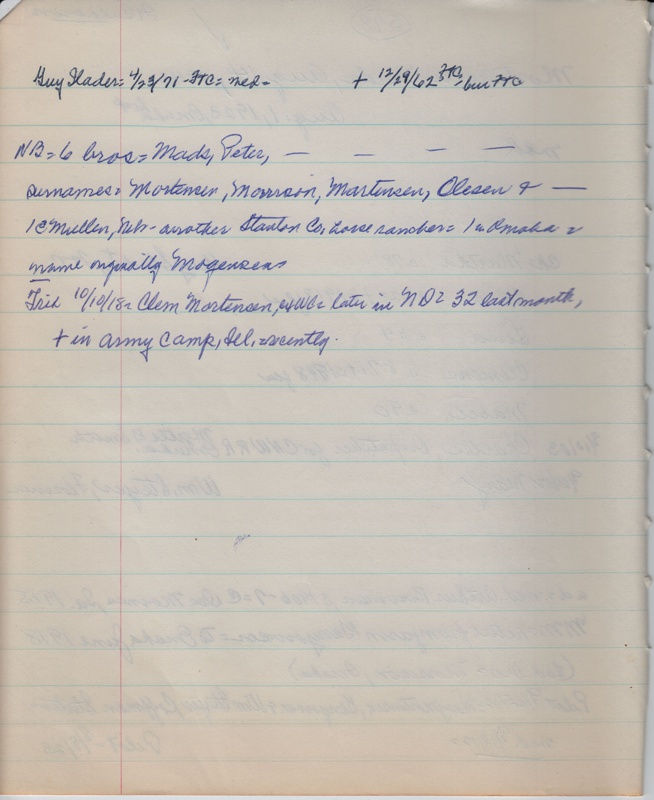 Guy Slader = 4/23/71 - = med - + 12/29/62 = bur
NB = 6 bros = Mads, Peter, — — — —
surnames = Mortensen, Morrison, Martensen, Olesen & —
1 @ Mullen, Neb - another Stanton Co, horse rancher = 1 in Omaha =
name originally Mogensens
Trib 10/10/18 = Clem Mortensen, = later in ND = 32 last month,
+ in army camp, Ill, recently.